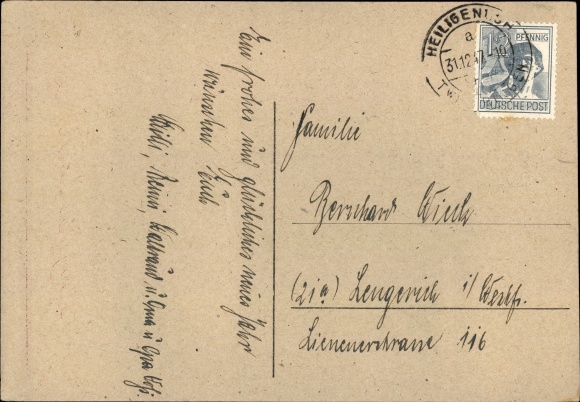 Ein frohes und glückliches neues Jahr
wünschen Euch
Willi, Heini, Waltraud u. Oma u Opa
HEILIGEN
a
31.12.47
PFENNIG
DEUTSCHE POST
Familie
Bernhard
(21a) Lengerich i/ Westf.
Lienenerstrasse 116